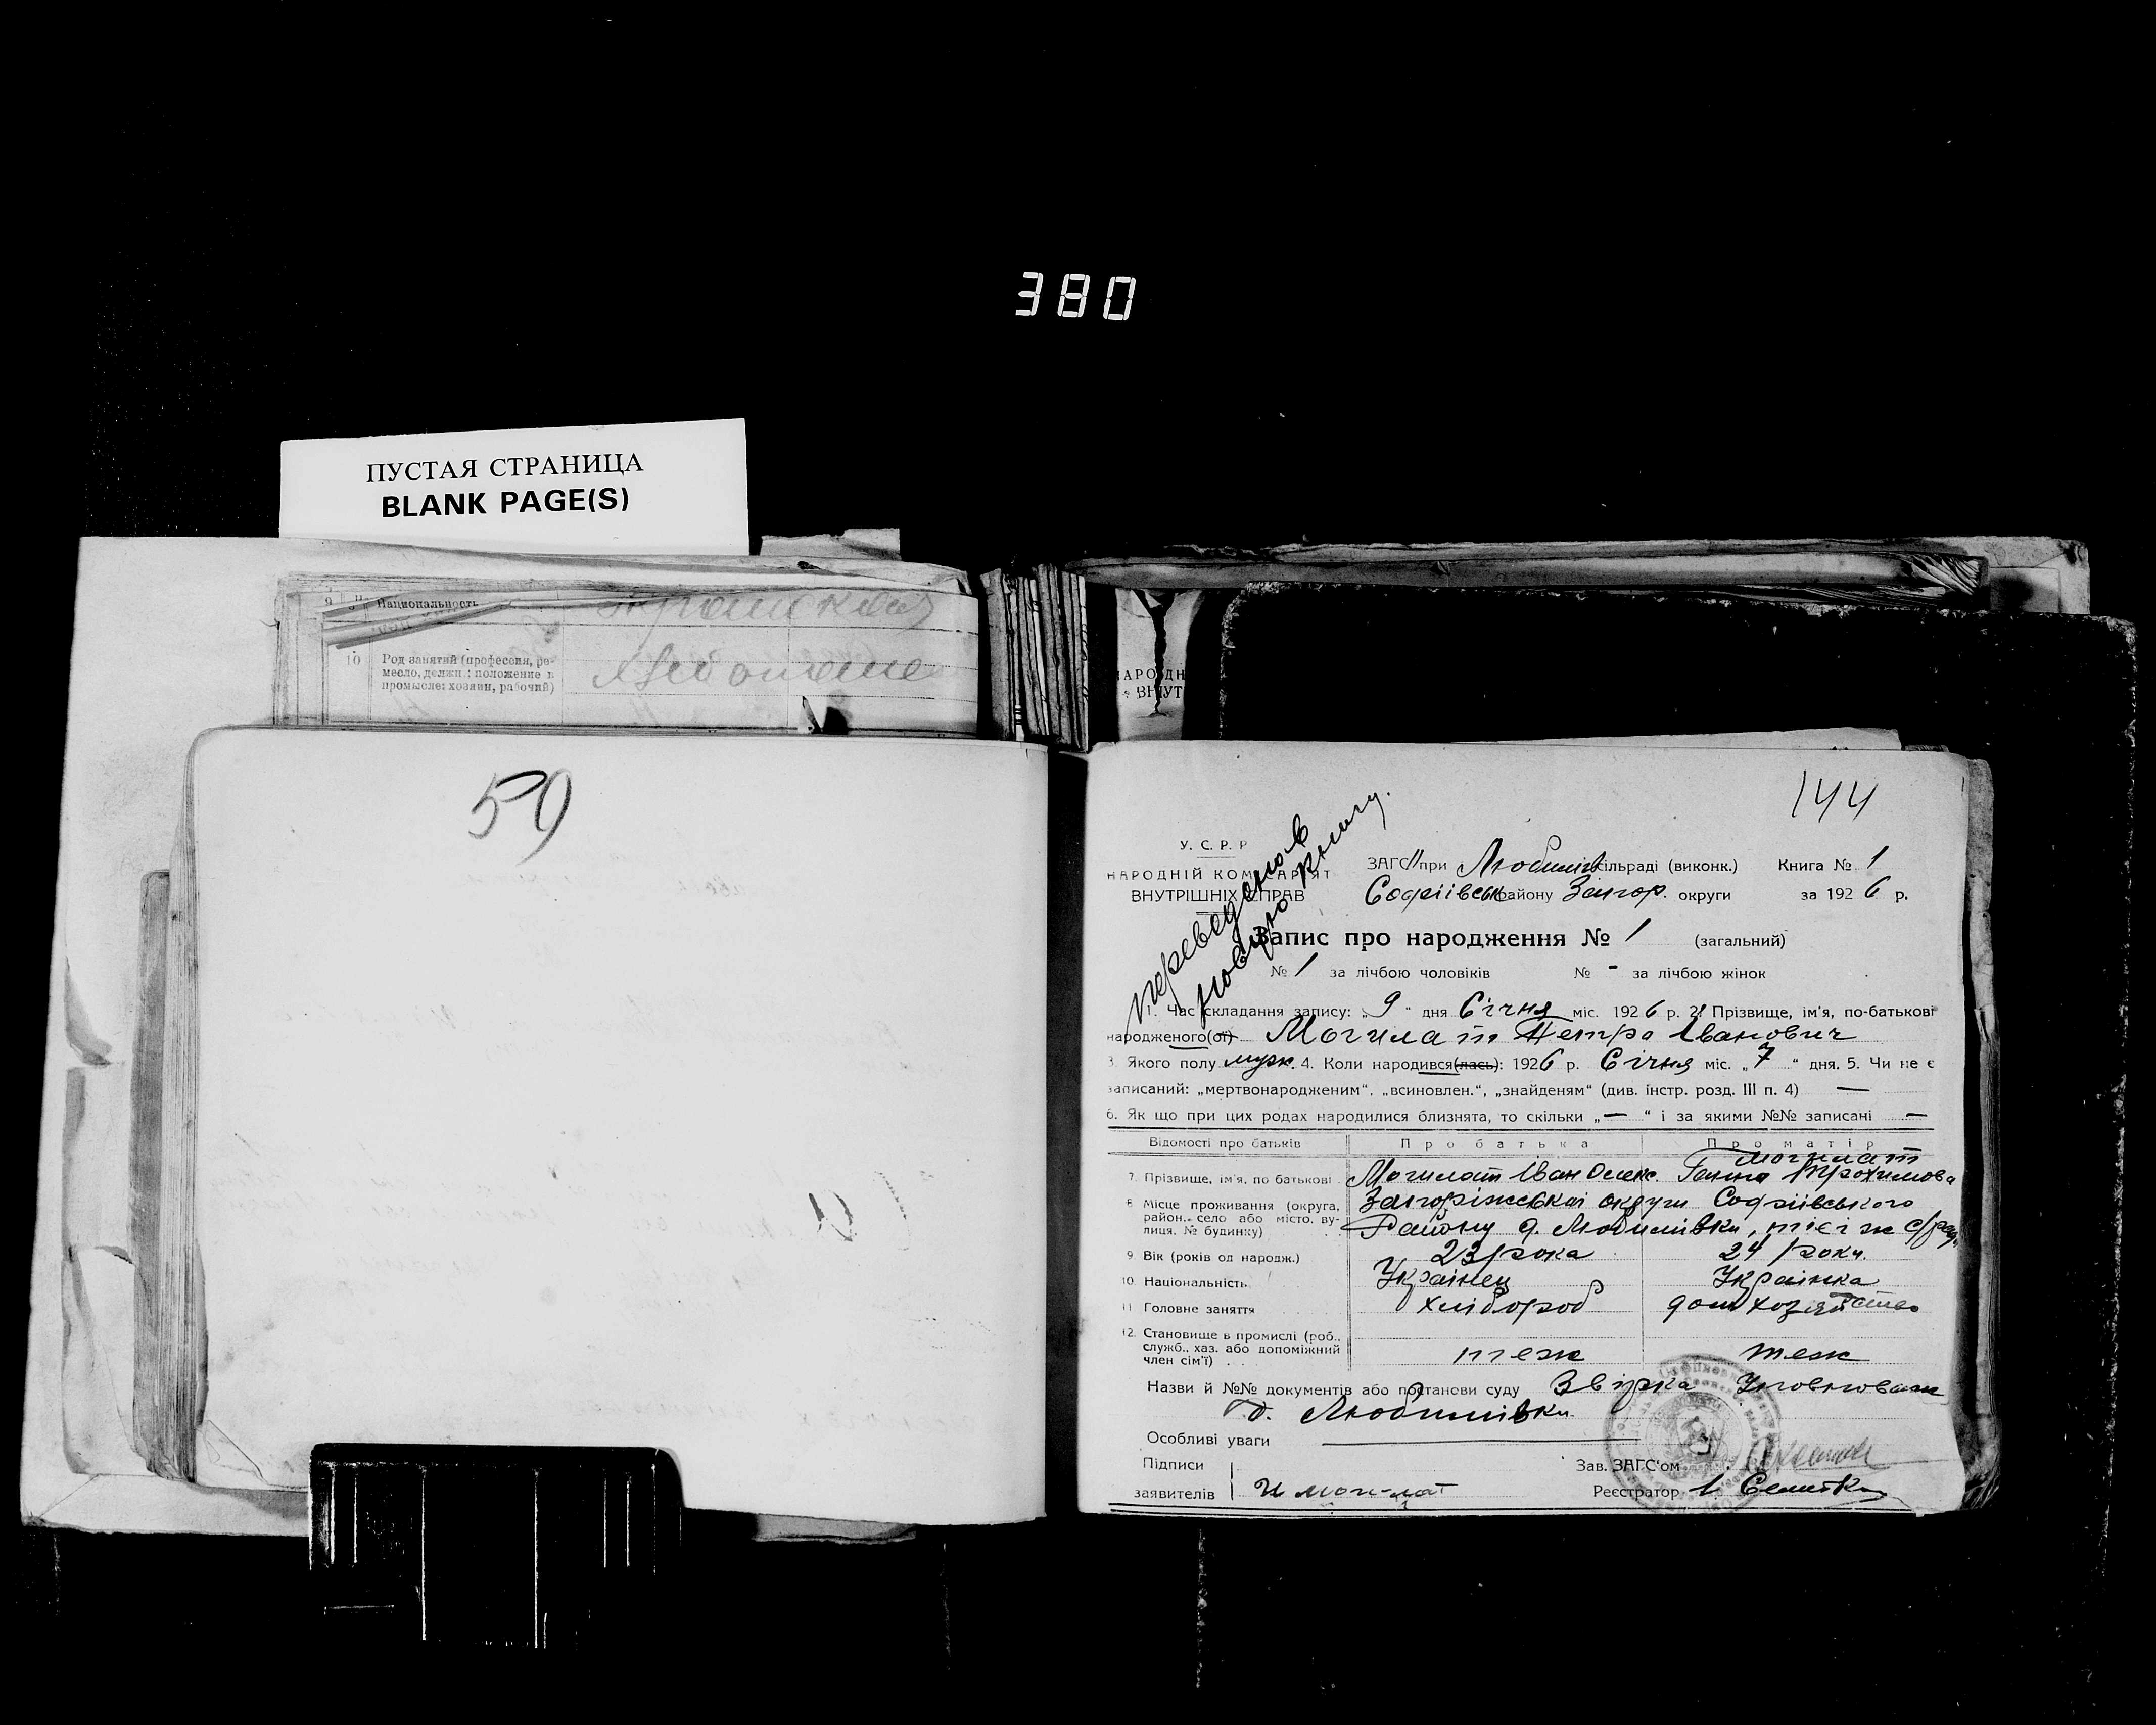 380
ПУСТАЯ СТРАНИЦА
BLANK PAGE(S)
9 Национальность
10 Род занятий (професеия, ре-
месло, должн.: положение в
промысле: хозяин, рабочий)
59
АРОДН
ВНУТ
144
переведено в
новую книгу.
У. С. Р. Р
НАРОДНІЙ КОМІСАРІЯТ
ВНУТРІШНІХ СПРАВ
ЗАГС при Любимів сільраді (виконк.) Книга № 1
Софіївськ району Запор. округи за 1926 р.
Запис про народження № 1 (загальний)
№ 1 за лічбою чоловіків № - за лічбою жінок
1. Час складання запису: „9“ дня Січня міс. 1926 р. 2. Прізвище, ім'я, по-батькові
народженого(ої) Могилат Петро Іванович
3. Якого полу муж. 4. Коли народився(лась): 1926 р. Січня міс. „7“ дня. 5. Чи не є
записаний: „мертвонародженим“, „всиновлен.“, „знайденям“ (див. інстр. розд. III п. 4) —
6. Як що при цих родах народилися близнята, то скільки „—“ і за якими №№ записані —
Відомості про батьків Про батька Про матір
7. Прізвище, ім'я, по батькові Могилат Іван Олекс. Могилат Ганна Трохимова
8. Місце проживання (округа, район, село або місто, вулиця, № будинку) Запоріжської округи Софіївського
Району д. Любимівки, тієї ж с/ради
9. Вік (років од народж.) 23 рока 24 роки.
10. Національність Українец Українка
11. Головне заняття хлібороб дом хозяйство
12. Становище в промислі (роб.,
служб., хаз. або допоміжний
член сім'ї) теж теж
Назви й №№ документів або постанови суду Звірка Уповноваж
д. Любимівки.
Особливі уваги
Підписи Зав. ЗАГС'ом
заявителів И Могилат Реєстратор